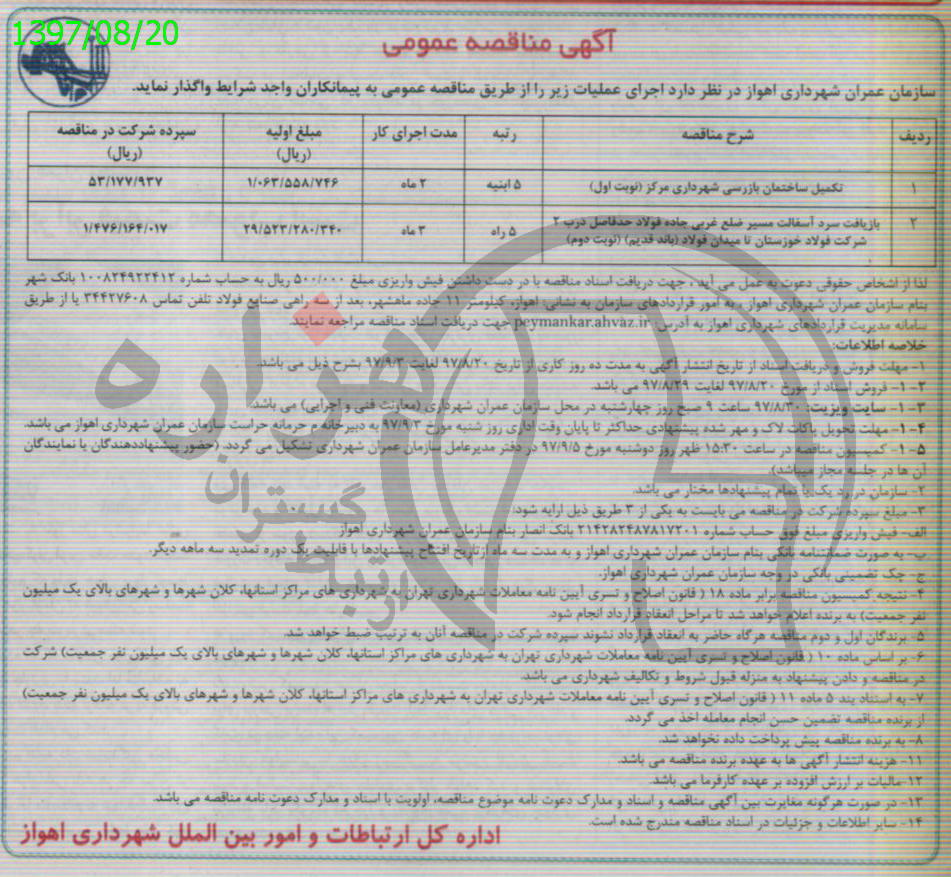 1397/08/20
آگهی مناقصه عمومی
سازمان عمران شهرداری اهواز در نظر دارد اجرای عملیات زیر را از طریق مناقصه عمومی به پیمانکاران واجد شرایط واگذار نماید.
ردیف شرح مناقصه رتبه مدت اجرای کار مبلغ اولیه (ریال) سپرده شرکت در مناقصه (ریال)
۱ تکمیل ساختمان بازرسی شهرداری مرکز (نوبت اول) ۵ ابنیه ۲ ماه ۱/۰۶۳/۵۵۸/۷۴۶ ۵۳/۱۷۷/۹۳۷
۲ بازیافت سرد آسفالت مسیر ضلع غربی جاده فولاد حدفاصل درب ۲ شرکت فولاد خوزستان تا میدان فولاد (باند قدیم) (نوبت دوم) ۵ راه ۳ ماه ۲۹/۵۲۳/۲۸۰/۳۴۰ ۱/۴۷۶/۱۶۴/۰۱۷
لذا از اشخاص حقوقی دعوت به عمل می آید ، جهت دریافت اسناد مناقصه با در دست داشتن فیش واریزی مبلغ ۵۰۰/۰۰۰ ریال به حساب شماره ۱۰۰۸۲۴۹۲۲۴۱۲ بانک شهر
بنام سازمان عمران شهرداری اهواز ، به امور قراردادهای سازمان به نشانی: اهواز، کیلومتر ۱۱ جاده ماهشهر، بعد از سه راهی صنایع فولاد تلفن تماس ۳۴۴۲۷۶۰۸ یا از طریق
سامانه مدیریت قراردادهای شهرداری اهواز به آدرس: peymankar.ahvaz.ir جهت دریافت اسناد مناقصه مراجعه نمایند.
خلاصه اطلاعات:
۱- مهلت فروش و دریافت اسناد از تاریخ انتشار آگهی به مدت ده روز کاری از تاریخ ۹۷/۸/۲۰ لغایت ۹۷/۹/۳ بشرح ذیل می باشد.
۲-۱- فروش اسناد از مورخ ۹۷/۸/۲۰ لغایت ۹۷/۸/۲۹ می باشد.
۳-۱- سایت ویزیت: ۹۷/۸/۳۰ ساعت ۹ صبح روز چهارشنبه در محل سازمان عمران شهرداری (معاونت فنی و اجرایی) می باشد.
۴-۱- مهلت تحویل پاکات لاک و مهر شده پیشنهادی حداکثر تا پایان وقت اداری روز شنبه مورخ ۹۷/۹/۳ به دبیرخانه م حرمانه حراست سازمان عمران شهرداری اهواز می باشد.
۵-۱- کمیسیون مناقصه در ساعت ۱۵:۳۰ ظهر روز دوشنبه مورخ ۹۷/۹/۵ در دفتر مدیرعامل سازمان عمران شهرداری تشکیل می گردد. (حضور پیشنهاددهندگان یا نمایندگان
آن ها در جلسه مجاز میباشد).
۲- سازمان در رد یک یا تمام پیشنهادها مختار می باشد.
۳- مبلغ سپرده شرکت در مناقصه می بایست به یکی از ۳ طریق ذیل ارایه شود:
الف- فیش واریزی مبلغ فوق حساب شماره ۲۱۴۲۸۲۴۸۷۸۱۷۲۰۱ بانک انصار بنام سازمان عمران شهرداری اهواز
ب- به صورت ضمانتنامه بانکی بنام سازمان عمران شهرداری اهواز و به مدت سه ماه ازتاریخ افتتاح پیشنهادها با قابلیت یک دوره تمدید سه ماهه دیگر.
ج- چک تضمینی بانکی در وجه سازمان عمران شهرداری اهواز.
۴- نتیجه کمیسیون مناقصه برابر ماده ۱۸ ( قانون اصلاح و تسری آیین نامه معاملات شهرداری تهران به شهرداری های مراکز استانها، کلان شهرها و شهرهای بالای یک میلیون
نفر جمعیت) به برنده اعلام خواهد شد تا مراحل انعقاد قرارداد انجام شود.
۵- برندگان اول و دوم مناقصه هرگاه حاضر به انعقاد قرارداد نشوند سپرده شرکت در مناقصه آنان به ترتیب ضبط خواهد شد.
۶- بر اساس ماده ۱۰ ( قانون اصلاح و تسری آیین نامه معاملات شهرداری تهران به شهرداری های مراکز استانها، کلان شهرها و شهرهای بالای یک میلیون نفر جمعیت) شرکت
در مناقصه و دادن پیشنهاد به منزله قبول شروط و تکالیف شهرداری می باشد.
۷- به استناد بند ۵ ماده ۱۱ ( قانون اصلاح و تسری آیین نامه معاملات شهرداری تهران به شهرداری های مراکز استانها، کلان شهرها و شهرهای بالای یک میلیون نفر جمعیت)
از برنده مناقصه تضمین حسن انجام معامله اخذ می گردد.
۸- به برنده مناقصه پیش پرداخت داده نخواهد شد.
۱۱- هزینه انتشار آگهی ها به عهده برنده مناقصه می باشد.
۱۲-مالیات بر ارزش افزوده بر عهده کارفرما می باشد.
۱۳- در صورت هرگونه مغایرت بین آگهی مناقصه و اسناد و مدارک دعوت نامه موضوع مناقصه، اولویت با اسناد و مدارک دعوت نامه مناقصه می باشد.
۱۴- سایر اطلاعات و جزئیات در اسناد مناقصه مندرج شده است.
اداره کل ارتباطات و امور بین الملل شهرداری اهواز
هزاره
گستران
ارتباط